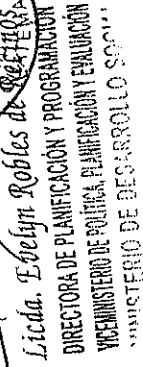 Licda. Evelyn Robles de Recinos
DIRECTORA DE PLANIFICACIÓN Y PROGRAMACIÓN
VICEMINISTERIO DE POLÍTICA, PLANIFICACIÓN Y EVALUACIÓN
MINISTERIO DE DESARROLLO SOCIAL